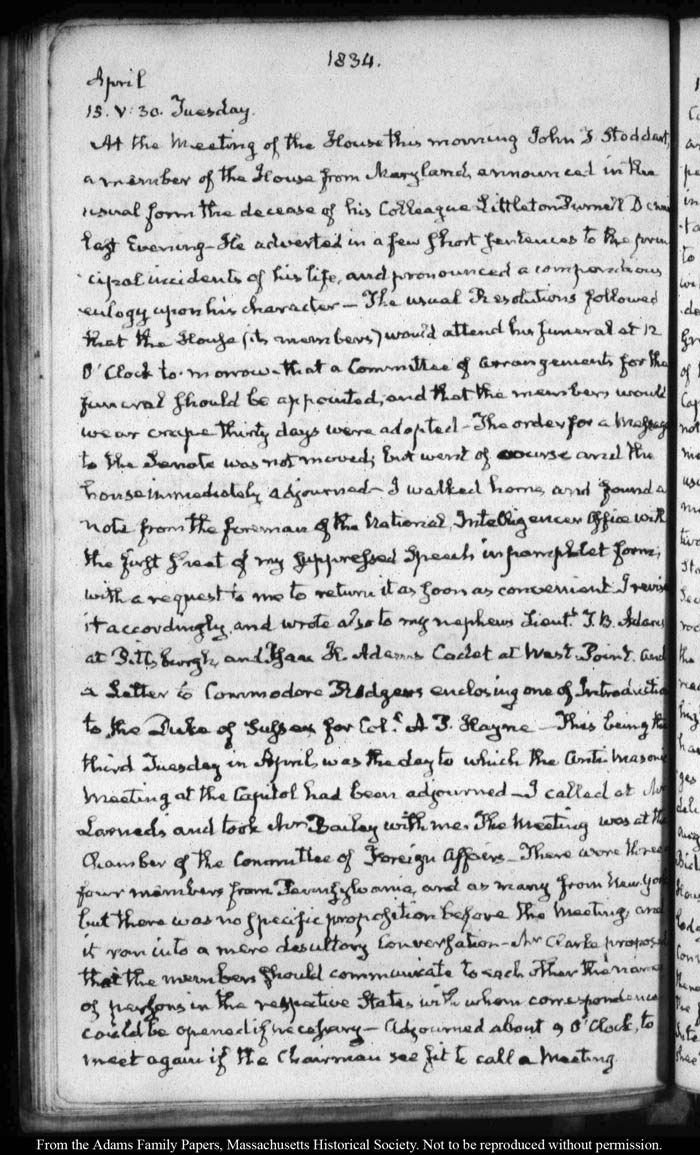 1834.
April
15. V: 30. Tuesday.
At the Meeting of the House this morning John T. Stoddart,
a member of the House from Maryland, announced in the
usual form the decease of his Colleague Littleton Purnell Denn
last Evening—He adverted in a few short sentences to the prin
cipal incidents of his life, and pronounced a compendious
eulogy upon his character—The usual Resolutions followed
that the House (its members) would attend his funeral at 12
O'Clock to-morrow—that a Committee of arrangements for the
funeral should be appointed, and that the members would
wear crape thirty days were adopted—The order for a Message
to the Senate was not moved; but went of course and the
house immediately adjourned—I walked home, and found a
note from the foreman of the National Intelligencer Office with
the first sheet of my suppressed Speech in pamphlet form;
with a request to me to return it as soon as convenient. I revise
it accordingly, and wrote also to my nephews Lieutt. T. B. Adams
at Pittsburgh, and Isaac H. Adams Cadet at West-Point. and
a Letter to Commodore Rodgers enclosing one of Introductio
to the Duke of Sussex for Col. A. P. Hayne—This being the
third Tuesday in April, was the day to which the Anti-Masonic
Meeting at the Capitol had been adjourned—I called at Mr
Larned's and took Mr Bailey with me. The Meeting was at the
Chamber of the Committee of Foreign Affairs—There were three
four members from Pennsylvania, and as many from New-York
but there was no specific proposition before the Meeting, and
it ran into a mere desultory Conversation—Mr Clarke proposed
that the members should communicate to each other the names
of persons in the respective States with whom correspondence
could be opened if necessary—Adjourned about 9 O'Clock, to
meet again if the Chairman see fit to call a Meeting.
From the Adams Family Papers, Massachusetts Historical Society. Not to be reproduced without permission.